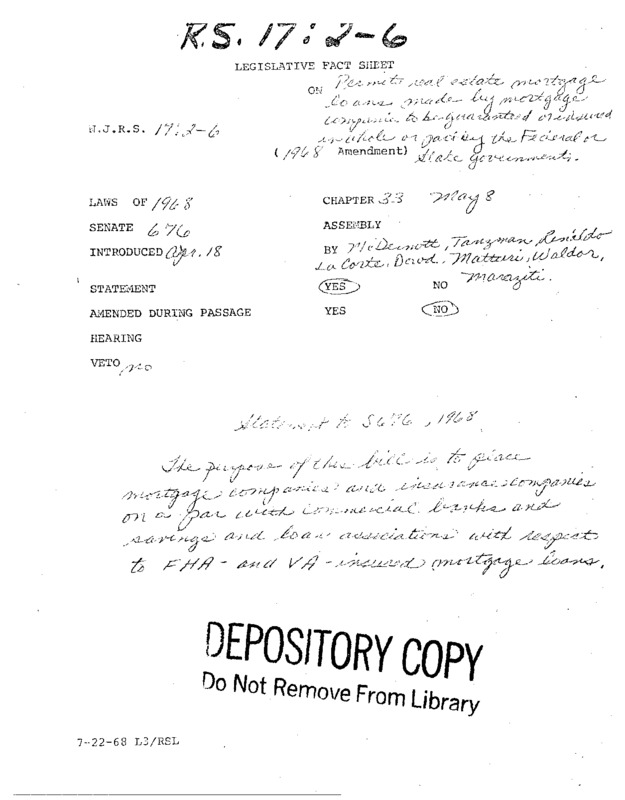 R.S. 17:2-6
LEGISLATIVE FACT SHEET
ON Permits real estate mortgage
loans made by mortgage
companies to be guaranteed or insured
N.J.R.S. 17:2-6
in whole or part by the Federal or
(1968 Amendment) State governments.
LAWS OF 1968
CHAPTER 33 May 8
SENATE 676
ASSEMBLY
INTRODUCED Apr. 18
BY McDermott, Tanzman, Rinaldo
La Corte, Dowd, Matturi, Waldor,
Maraziti.
STATEMENT YES NO
AMENDED DURING PASSAGE YES NO
HEARING
VETO no
Statement to S676, 1968
The purpose of this bill is to place
mortgage companies and insurance companies
on a par with commercial banks and
savings and loan associations with respect
to FHA- and VA-insured mortgage loans.
DEPOSITORY COPY
Do Not Remove From Library
7-22-68 L3/RSL